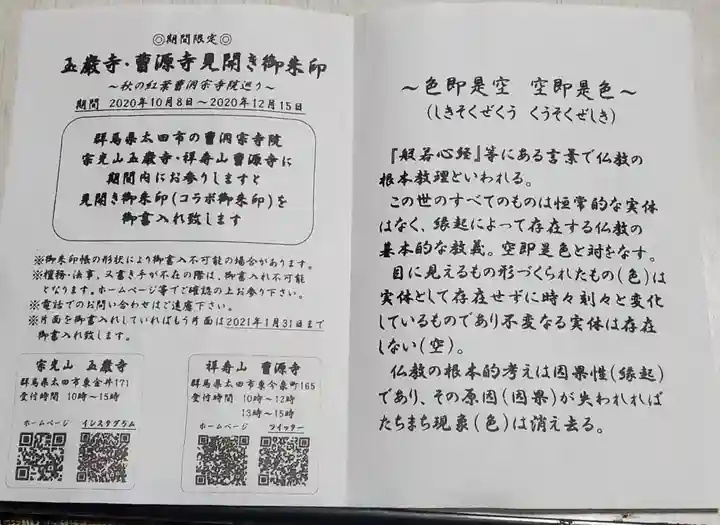 ◎期間限定◎
玉巖寺・曹源寺見開き御朱印
～秋の紅葉曹洞宗寺院巡り～
期間 2020年10月8日～2020年12月15日
群馬県太田市の曹洞宗寺院
宗光山玉巖寺・祥寿山曹源寺に
期間内にお参りしますと
見開き御朱印(コラボ御朱印)を
御書入れ致します
※御朱印帳の形状により御書入不可能の場合があります。
※檀務・法事、又書き手が不在の際は、御書入れ不可能
となります。ホームページ等でご確認の上お参り下さい。
※電話でのお問い合わせはご遠慮下さい。
※片面を御書入れしていればもう片面は2021年1月31日まで
御書入れ致します。
宗光山 玉巖寺
群馬県太田市東金井171
受付時間 10時～15時
ホームページ インスタグラム
祥寿山 曹源寺
群馬県太田市東今泉町165
受付時間 10時～12時
13時～15時
ホームページ ツイッター
～色即是空 空即是色～
(しきそくぜくう くうそくぜしき)
『般若心経』等にある言葉で仏教の
根本教理といわれる。
この世のすべてのものは恒常的な実体
はなく、縁起によって存在する仏教の
基本的な教義。空即是色と対をなす。
目に見えるもの形づくられたもの(色)は
実体として存在せずに時々刻々と変化
しているものであり不変なる実体は存在
しない(空)。
仏教の根本的考えは因果性(縁起)
であり、その原因(因果)が失われれば
たちまち現象(色)は消え去る。